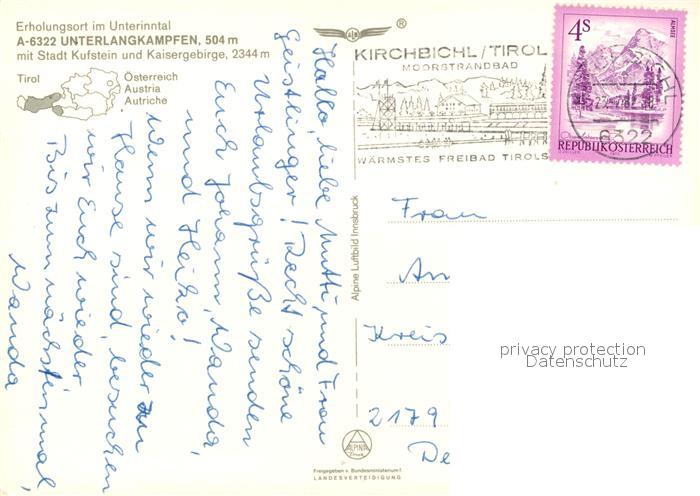 Erholungsort im Unterinntal
A-6322 UNTERLANGKAMPFEN, 504 m
mit Stadt Kufstein und Kaisergebirge, 2344 m
Tirol
Österreich
Austria
Autriche
®
KIRCHBICHL/TIROL
MOORSTRANDBAD
WÄRMSTES FREIBAD TIROLS
4S
ALMSEE
6322
REPUBLIK ÖSTERREICH
Hallo, liebe Mutti und Frau
Geistlinger! Recht schöne
Urlaubsgrüße senden
Euch Johann, Wanda,
und Heiko!
Wenn wir wieder zu
Hause sind, besuchen
wir Euch wieder
Bis zum nächstenmal,
Wanda
Alpine Luftbild Innsbruck
Frau
An
Kreis
2179
De
privacy protection
Datenschutz
ALPINE
Freigegeben v. Bundesministerium f.
LANDESVERTEIDIGUNG